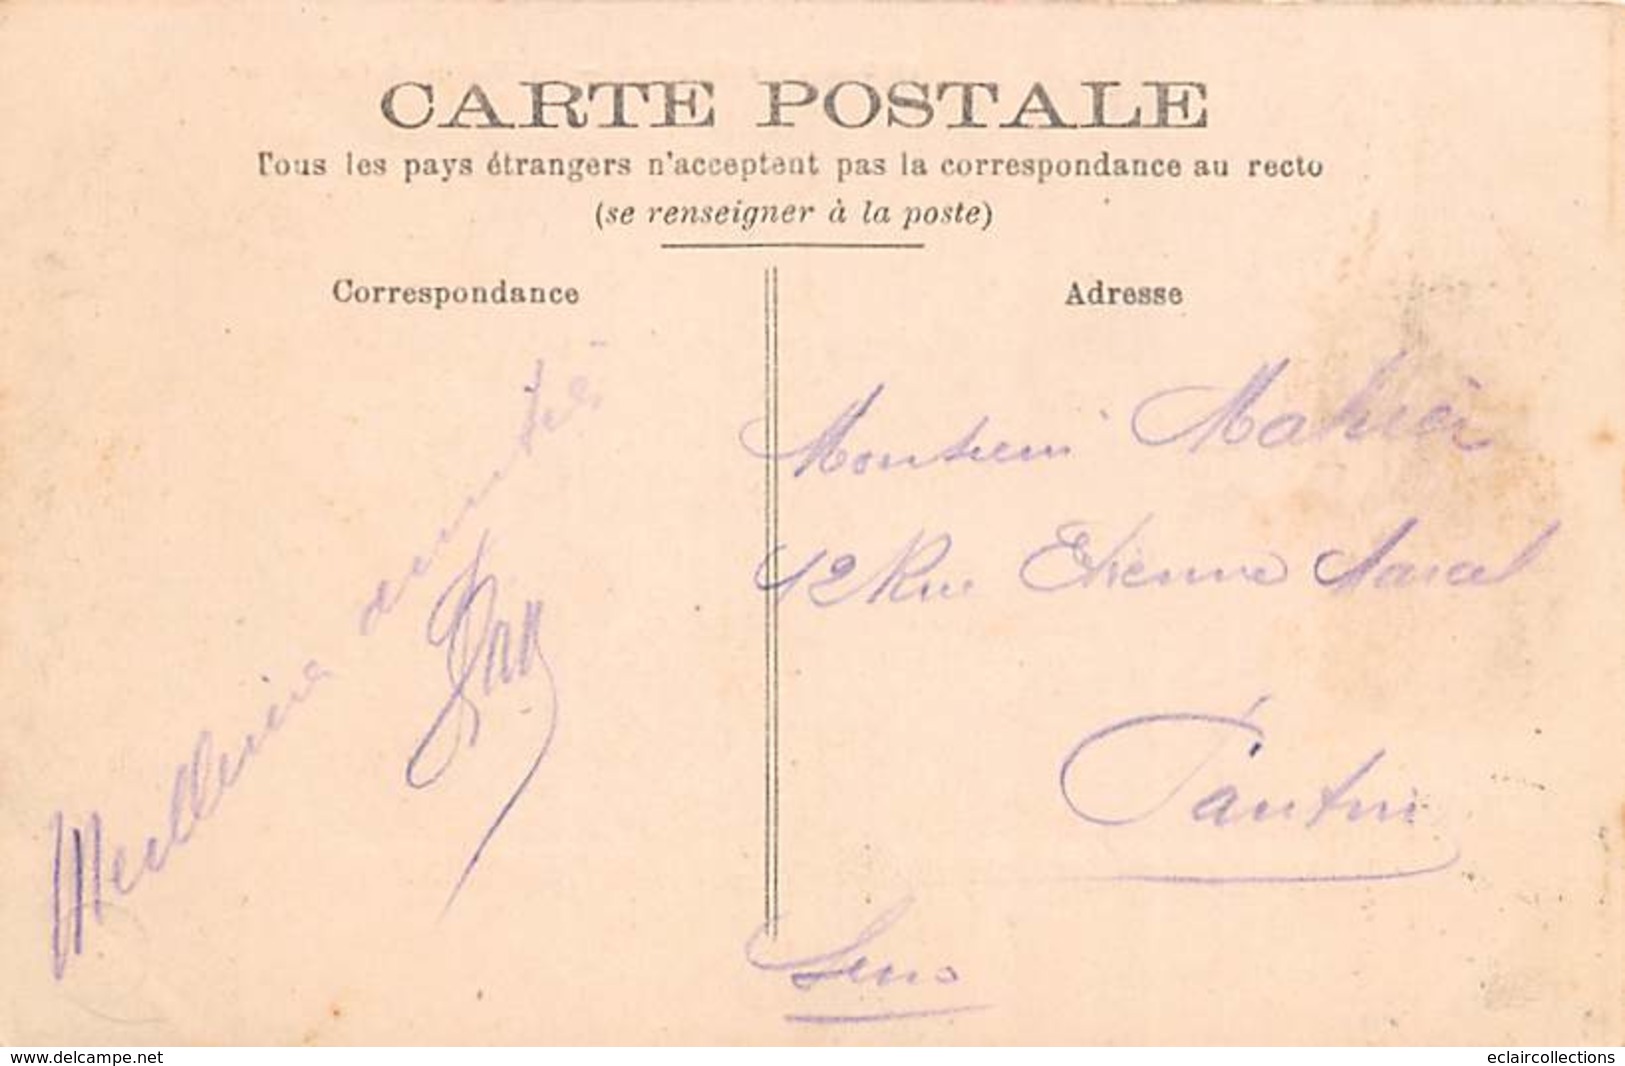 CARTE POSTALE
Tous les pays étrangers n'acceptent pas la correspondance au recto
(se renseigner à la poste)
Correspondance
Adresse
Meilleures amitiés
Monsieur Mahieu
42 Rue Etienne Marcel
Pantin
Seine
www.delcampe.net
eclaircollections